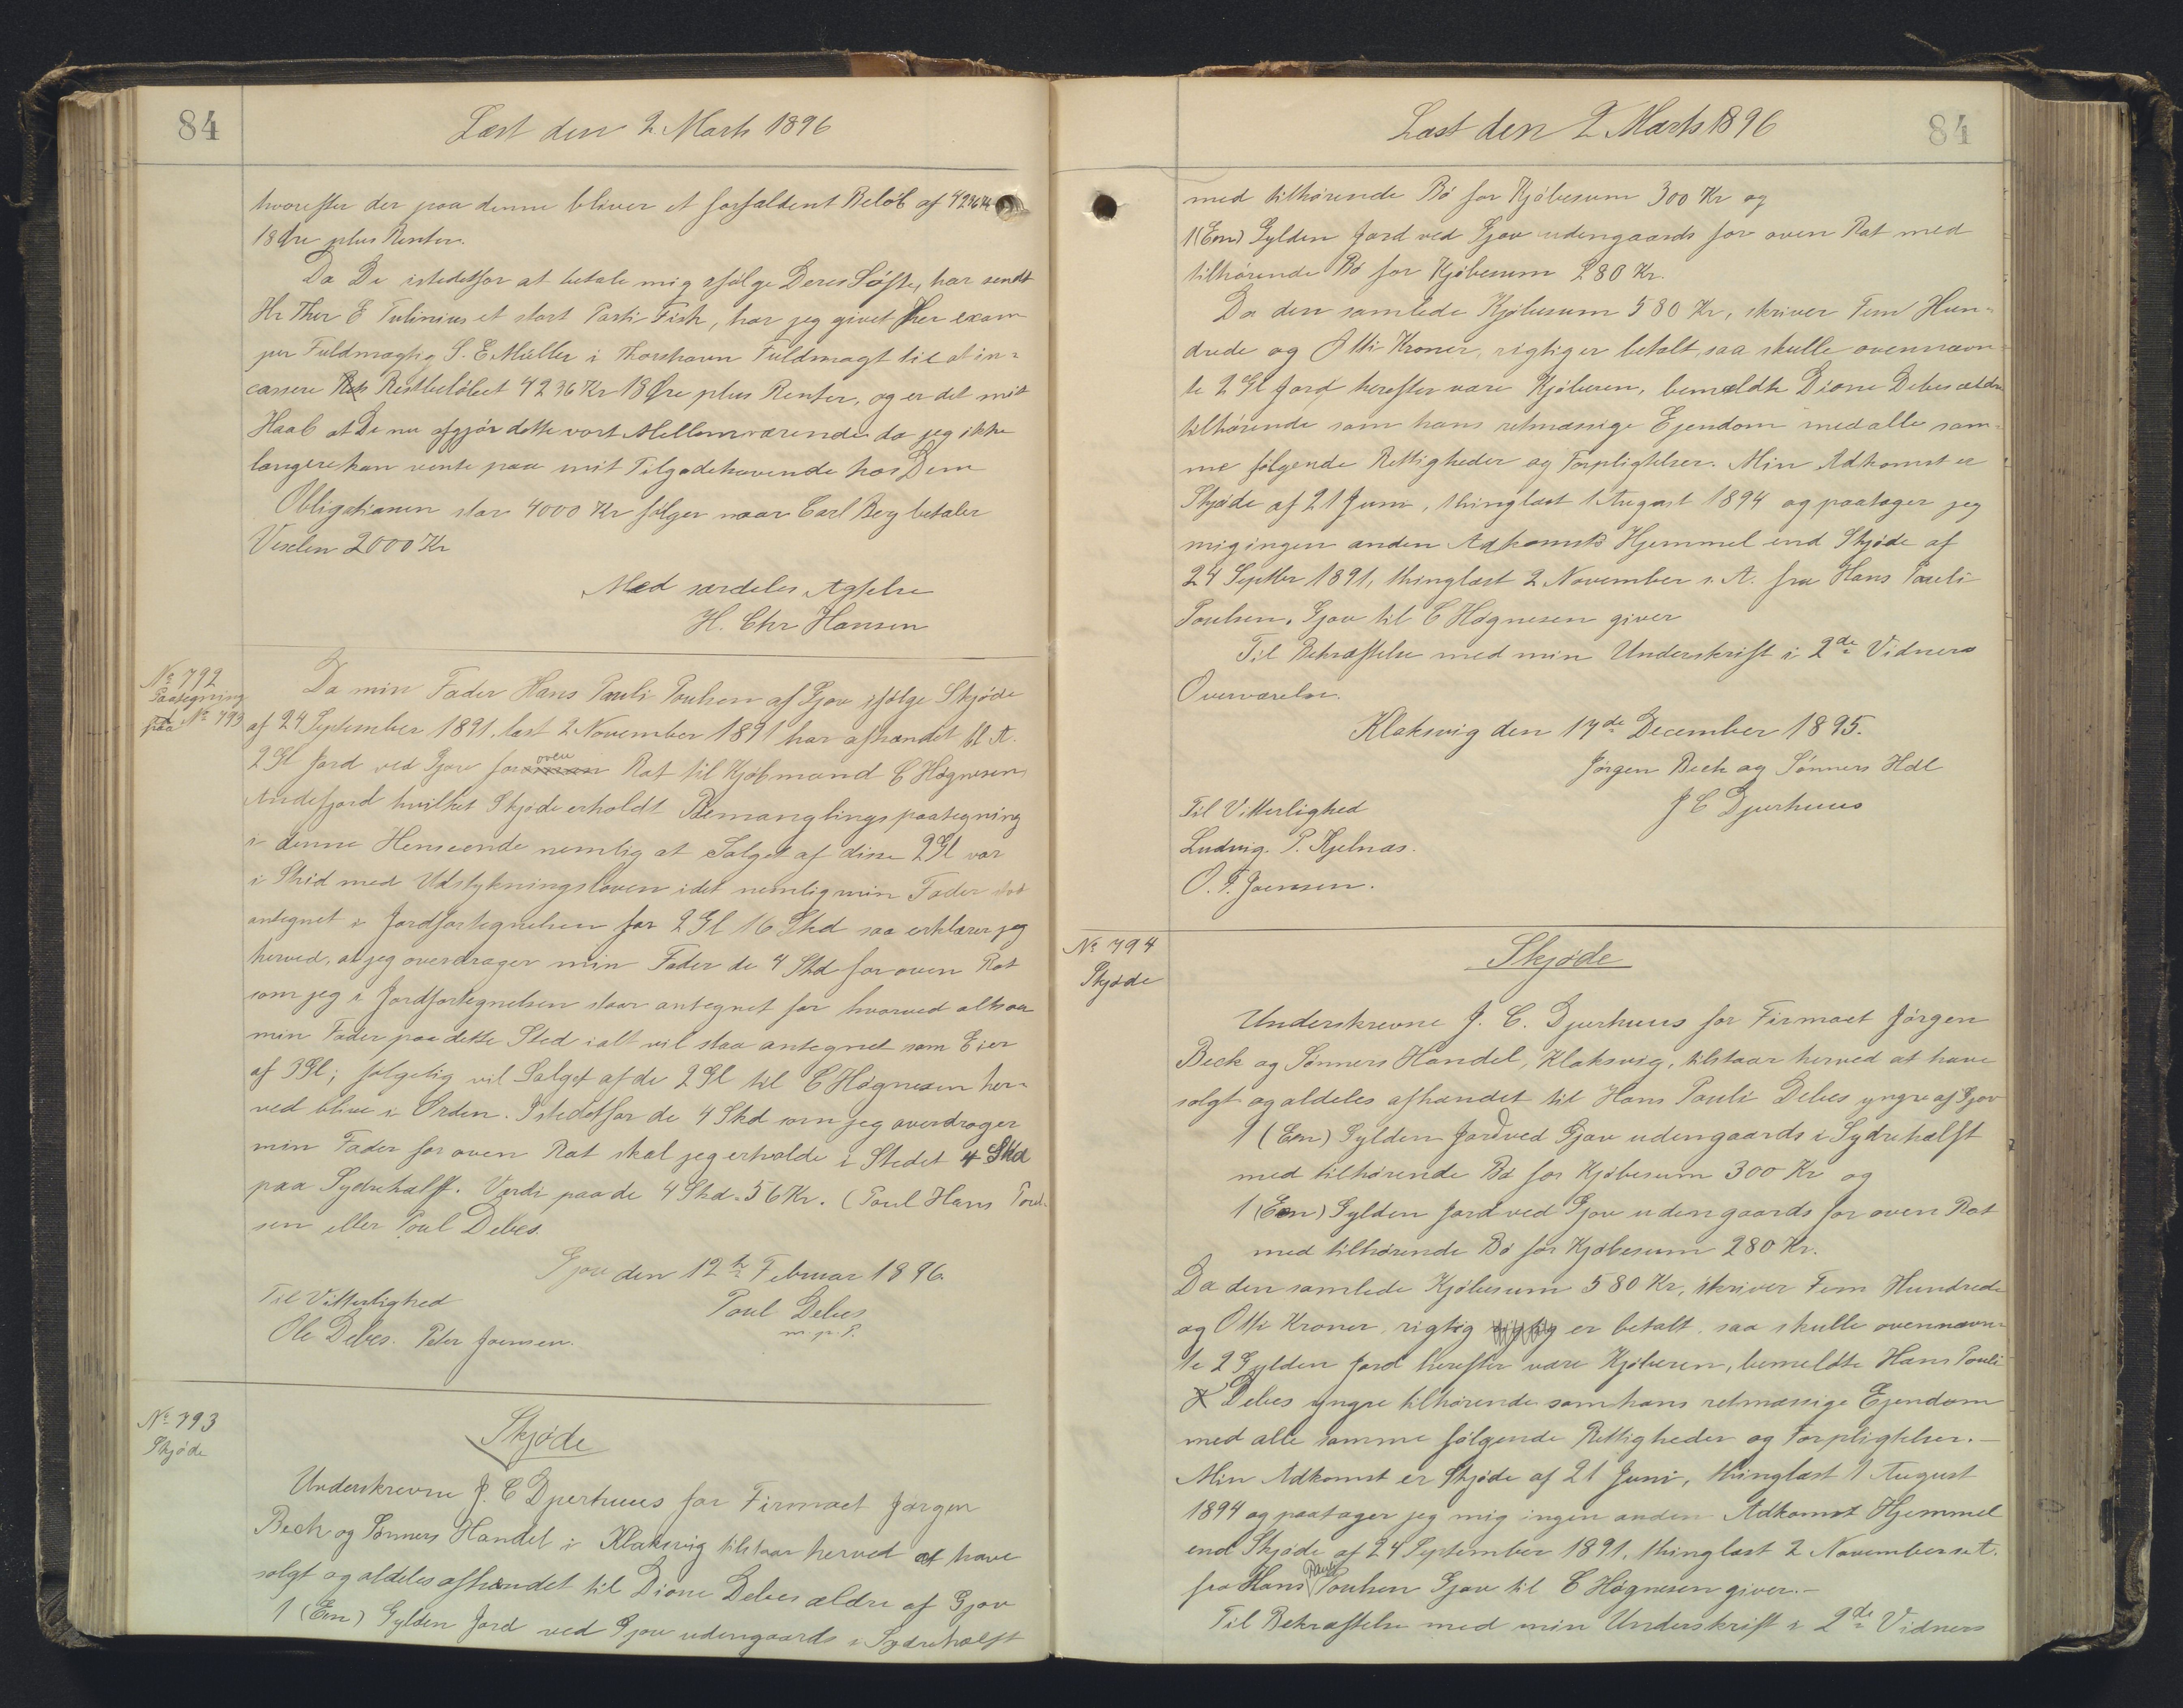 84
Læst den 2 Marts 1896
hvorefter der paa denne bliver et forfaldent Beløb af 4236 Kr
18 Øre plus Renter.
Da De istedetfor at betale mig ifølge Deres Løfte, har sendt
Hr Thor E Tulinius et stort Parti Fisk, har jeg givet Her exam
jur Fuldmægtig S. E Müller i Thorshavn Fuldmagt til at in-
cassere Restbeløbet 4236 Kr 18 Øre plus Renter, og er det mit
Haab at De nu afgjør dette vort Mellemværende da jeg ikke
længere kan vente paa mit Tilgodehavende hos Dem
Obligationen stor 4000 Kr følger naar Carl Berg betaler
Vexlen 2000 Kr
Med særdeles Agtelse
H. Chr Hansen
No 792
Paategning
paa No 793
Da min Fader Hans Pauli Poulsen af Gjov ifølge Skjøde
af 24 September 1891, læst 2 November 1891 har afhændet bl A.
2 Gl Jord ved Gjov for oven Rát til Kjøbmand C Høgnesen
Andefjord hvilket Skjøde erholdt Bemanglingspaategning
i denne Henseende nemlig at Salget af disse 2 Gl var
i Strid med Udstykningsloven idet nemlig min Fader stod
antegnet i Jordfortegnelsen for 2 Gl 16 Skd saa erklærer jeg
herved, at jeg overdrager min Fader de 4 Skd for oven Rát
som jeg i Jordfortegnelsen staar antegnet for hvorved altsaa
min Fader paa dette Sted ialt vil staa antegnet som Eier
af 3 Gl; følgelig vil Salget af de 2 Gl til C Høgnesen her-
ved blive i Orden. Istedetfor de 4 Skd som jeg overdrager
min Fader for oven Rát skal jeg erholde i Stedet 4 Skd
paa Sydrehalft. Værdi paa de 4 Skd = 56 Kr. (Poul Hans Poul-
sen eller Poul Debes.
Gjov den 12te Februar 1896.
Til Vitterlighed
Poul Debes
m. p. P.
Ole Debes. Peter Joensen.
No 793
Skjøde
Skjøde
Underskrevne J. C Djurhuus for Firmaet Jørgen
Bech og Sønners Handel i Klaksvig tilstaar herved at have
solgt og aldeles afhændet til Dione Debes ældre af Gjov
1 (Een) Gylden Jord ved Gjov udengaards i Sydrehalft
Læst den 2 Marts 1896
84
med tilhørende Bø for Kjøbesum 300 Kr og
1 (Een) Gylden Jord ved Gjov udengaards for oven Rát med
tilhørende Bø for Kjøbesum 280 Kr.
Da den samlede Kjøbesum 580 Kr, skriver Fem Hun-
drede og Otti Kroner, rigtig er betalt, saa skulle ovennævn-
te 2 Gl Jord herefter være Kjøberen, bemældte Dione Debes ældre
tilhørende som hans retmæssige Ejendom med alle sam-
me følgende Rettigheder og Forpligtelser. Min Adkomst er
Skjøde af 21 Juni, thinglæst 1 August 1894 og paatager jeg
mig ingen anden Adkomsts Hjemmel end Skjøde af
24 Septbr 1891, thinglæst 2 November s. A. fra Hans Pauli
Poulsen, Gjov til C Høgnesen giver
Til Bekræftelse med min Underskrift i 2de Vidners
Overværelse.
Klaksvig den 17de December 1895.
Jørgen Bech og Sønners Hdl
J C Djurhuus
Til Vitterlighed
Ludvig. P. Kjelnæs.
O. F. Joensen.
No 794
Skjøde
Skjøde
Underskrevne J. C. Djurhuus for Firmaet Jørgen
Bech og Sønners Handel, Klaksvig, tilstaar herved at have
solgt og aldeles afhændet til Hans Pauli Debes yngre af Gjov
1 (Een) Gylden Jord ved Gjov udengaards i Sydrehalft
med tilhørende Bø for Kjøbesum 300 Kr og
1 (Een) Gylden Jord ved Gjov udengaards for oven Rát
med tilhørende Bø for Kjøbesum 280 Kr.
Da den samlede Kjøbesum 580 Kr, skriver Fem Hundrede
og Otti Kroner, rigtig er betalt, saa skulle ovennævn-
te 2 Gylden Jord herefter være Kjøberen, bemeldte Hans Pauli
Debes yngre tilhørende som hans retmæssige Ejendom
med alle samme følgende Rettigheder og Forpligtelser.-
Min Adkomst er Skjøde af 21 Juni, thinglæst 1 August
1894 og paatager jeg mig ingen anden Adkomst Hjemmel
end Skjøde af 24 September 1891, thinglæst 2 November s. A.
fra Hans Pauli Poulsen Gjov til C Høgnesen giver.-
Til Bekræftelse med min Underskrift i 2de Vidners